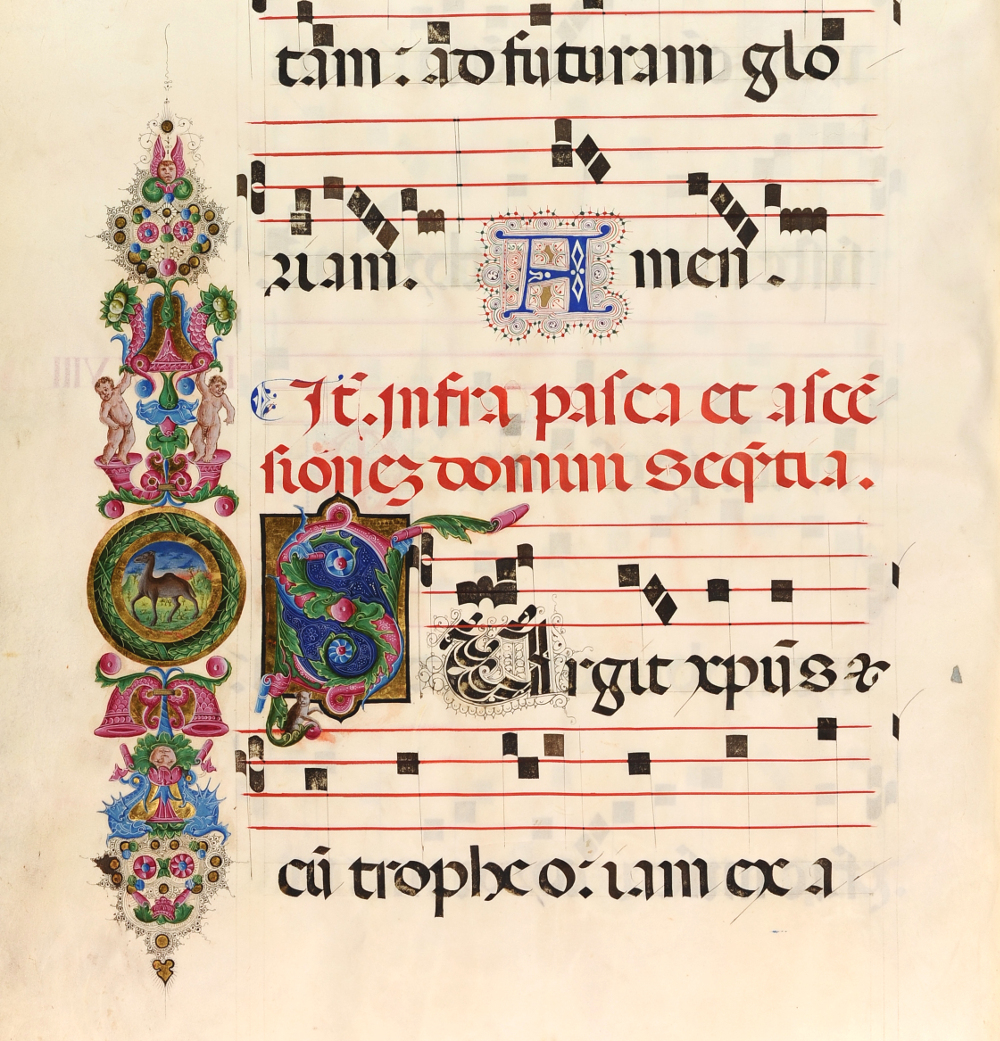 tam : ad futuram glo
riam. Amen .
It̃. infra pasca et ascẽ
sionez domini Seq̃tia .
SUrgit xp̃us &
cũ tropheo: iam ex a